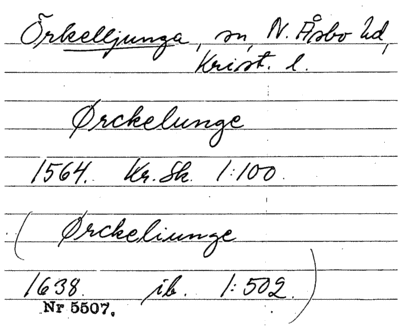 Örkelljunga, sn, N. Åsbo hd,
Krist. l.
Ørckelunge
1564. Kr. Sk. 1:100.
( Ørckeliunge
1638. ib. 1:502. )
Nr 5507.